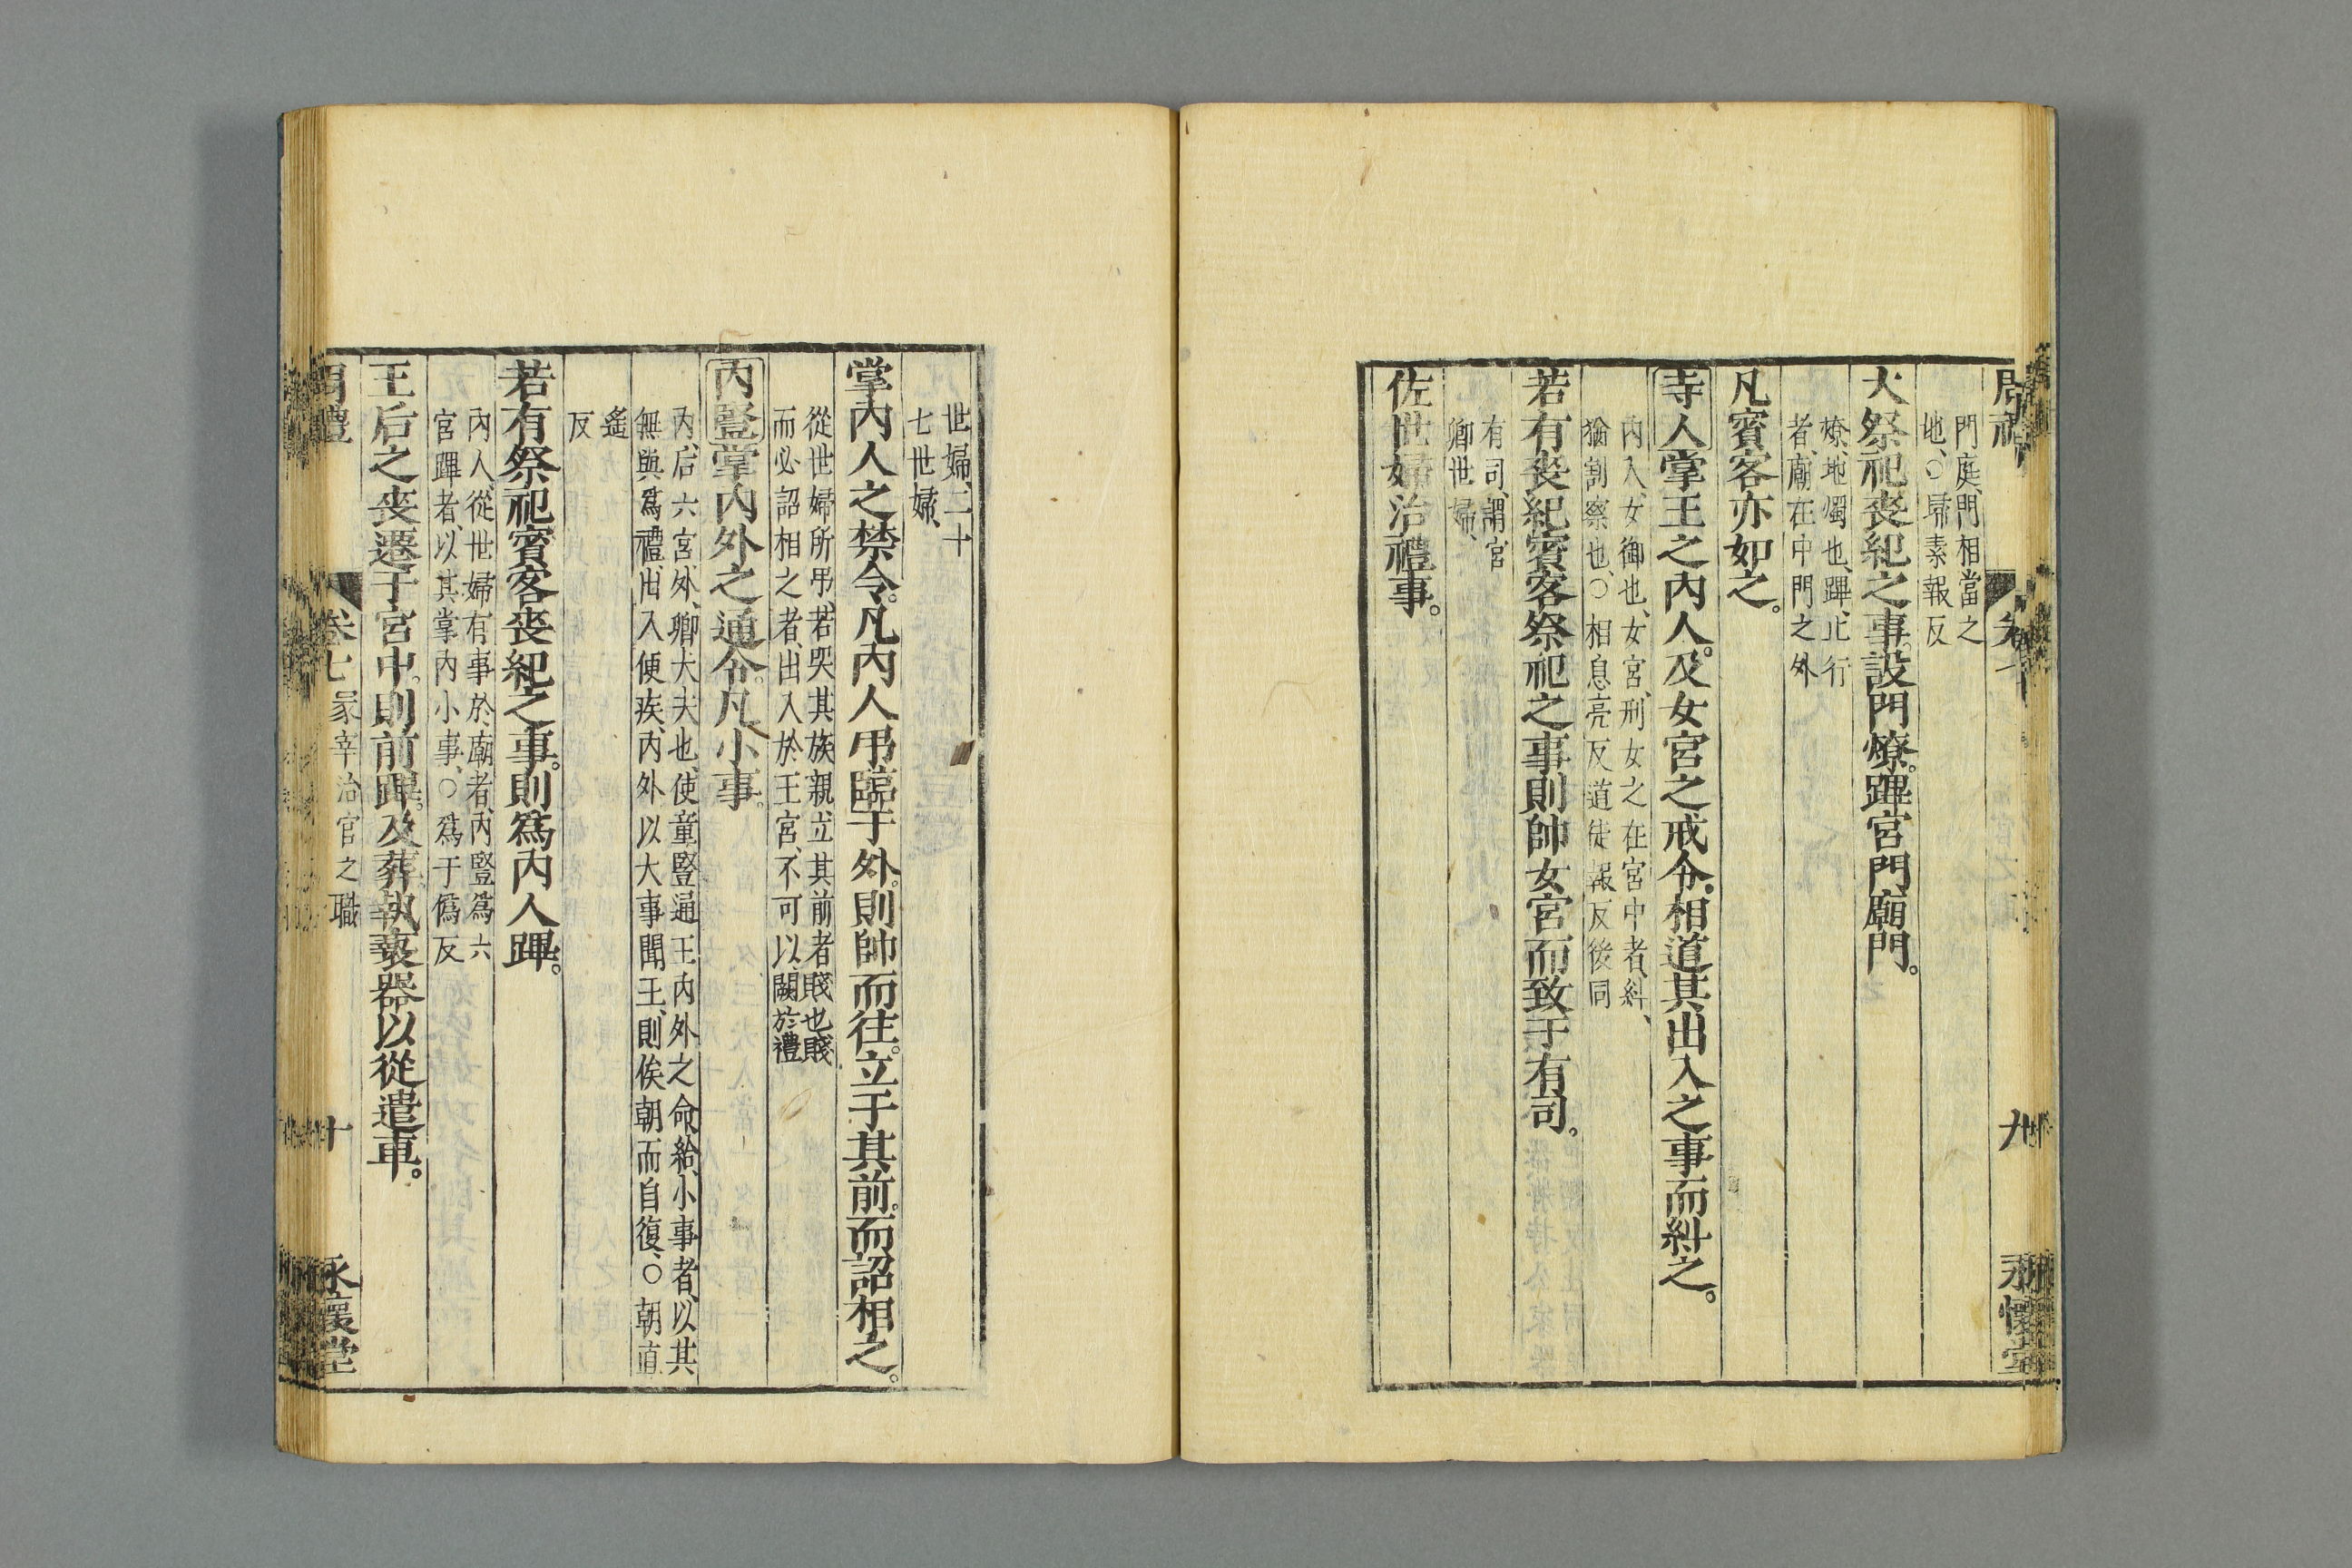 門庭、門相當之
地、○埽素報反
大祭祀喪紀之事。設門燎。蹕宮門廟門。
燎、地燭也、蹕、止行
者、廟在中門之外
凡賓客亦如之。
寺人掌王之內人。及女宮之戒令。相道其出入之事而糾之。
內人、女御也、女宮、刑女之在宮中者、糾、
猶割察也、○相息亮反道徒報反後同
若有喪紀賓客祭祀之事則帥女宮而致于有司。
有司、謂宮
卿世婦、
佐世婦治禮事。
世婦、二十
七世婦、
掌內人之禁令。凡內人弔臨于外。則帥而往。立于其前。而詔相之。
從世婦所弔、若哭其族親、立其前者賤也賤
而必詔相之者、出入於王宮、不可以闕於禮
內豎掌內外之通令。凡小事。
內、后六宮、外、卿大夫也、使童豎通王內外之命、給小事者、以其
無與爲禮、出入便疾、內外以大事聞王、則俟朝而自復、○朝直
遙
反
若有祭祀賓客喪紀之事。則爲內人蹕。
內人、從世婦有事於廟者、內豎爲六
宮蹕者、以其掌內小事、○爲于僞反
王后之喪遷于宮中。則前蹕。及葬。執褻器以從遣車。
周禮 卷七 冢宰治官之職 十 永懷堂